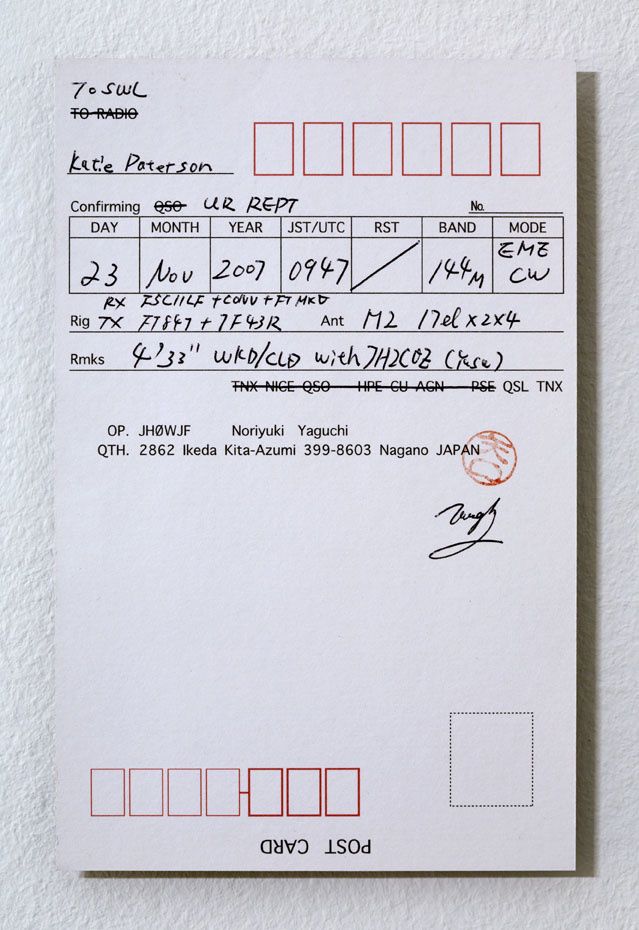 To SWL
TO RADIO
Katie Paterson
Confirming QSO UR REPT No.
DAY MONTH YEAR JST/UTC RST BAND MODE
23 Nov 2007 0947 / 144M EME CW
RX
Rig TX FT847 + TF43R Ant M2 17el x2x4
Rmks 4'33" WKD/CLD with 7H2COZ
TNX NICE QSO HPE CU AGN PSE QSL TNX
OP. JHØWJF Noriyuki Yaguchi
QTH. 2862 Ikeda Kita-Azumi 399-8603 Nagano JAPAN
POST CARD